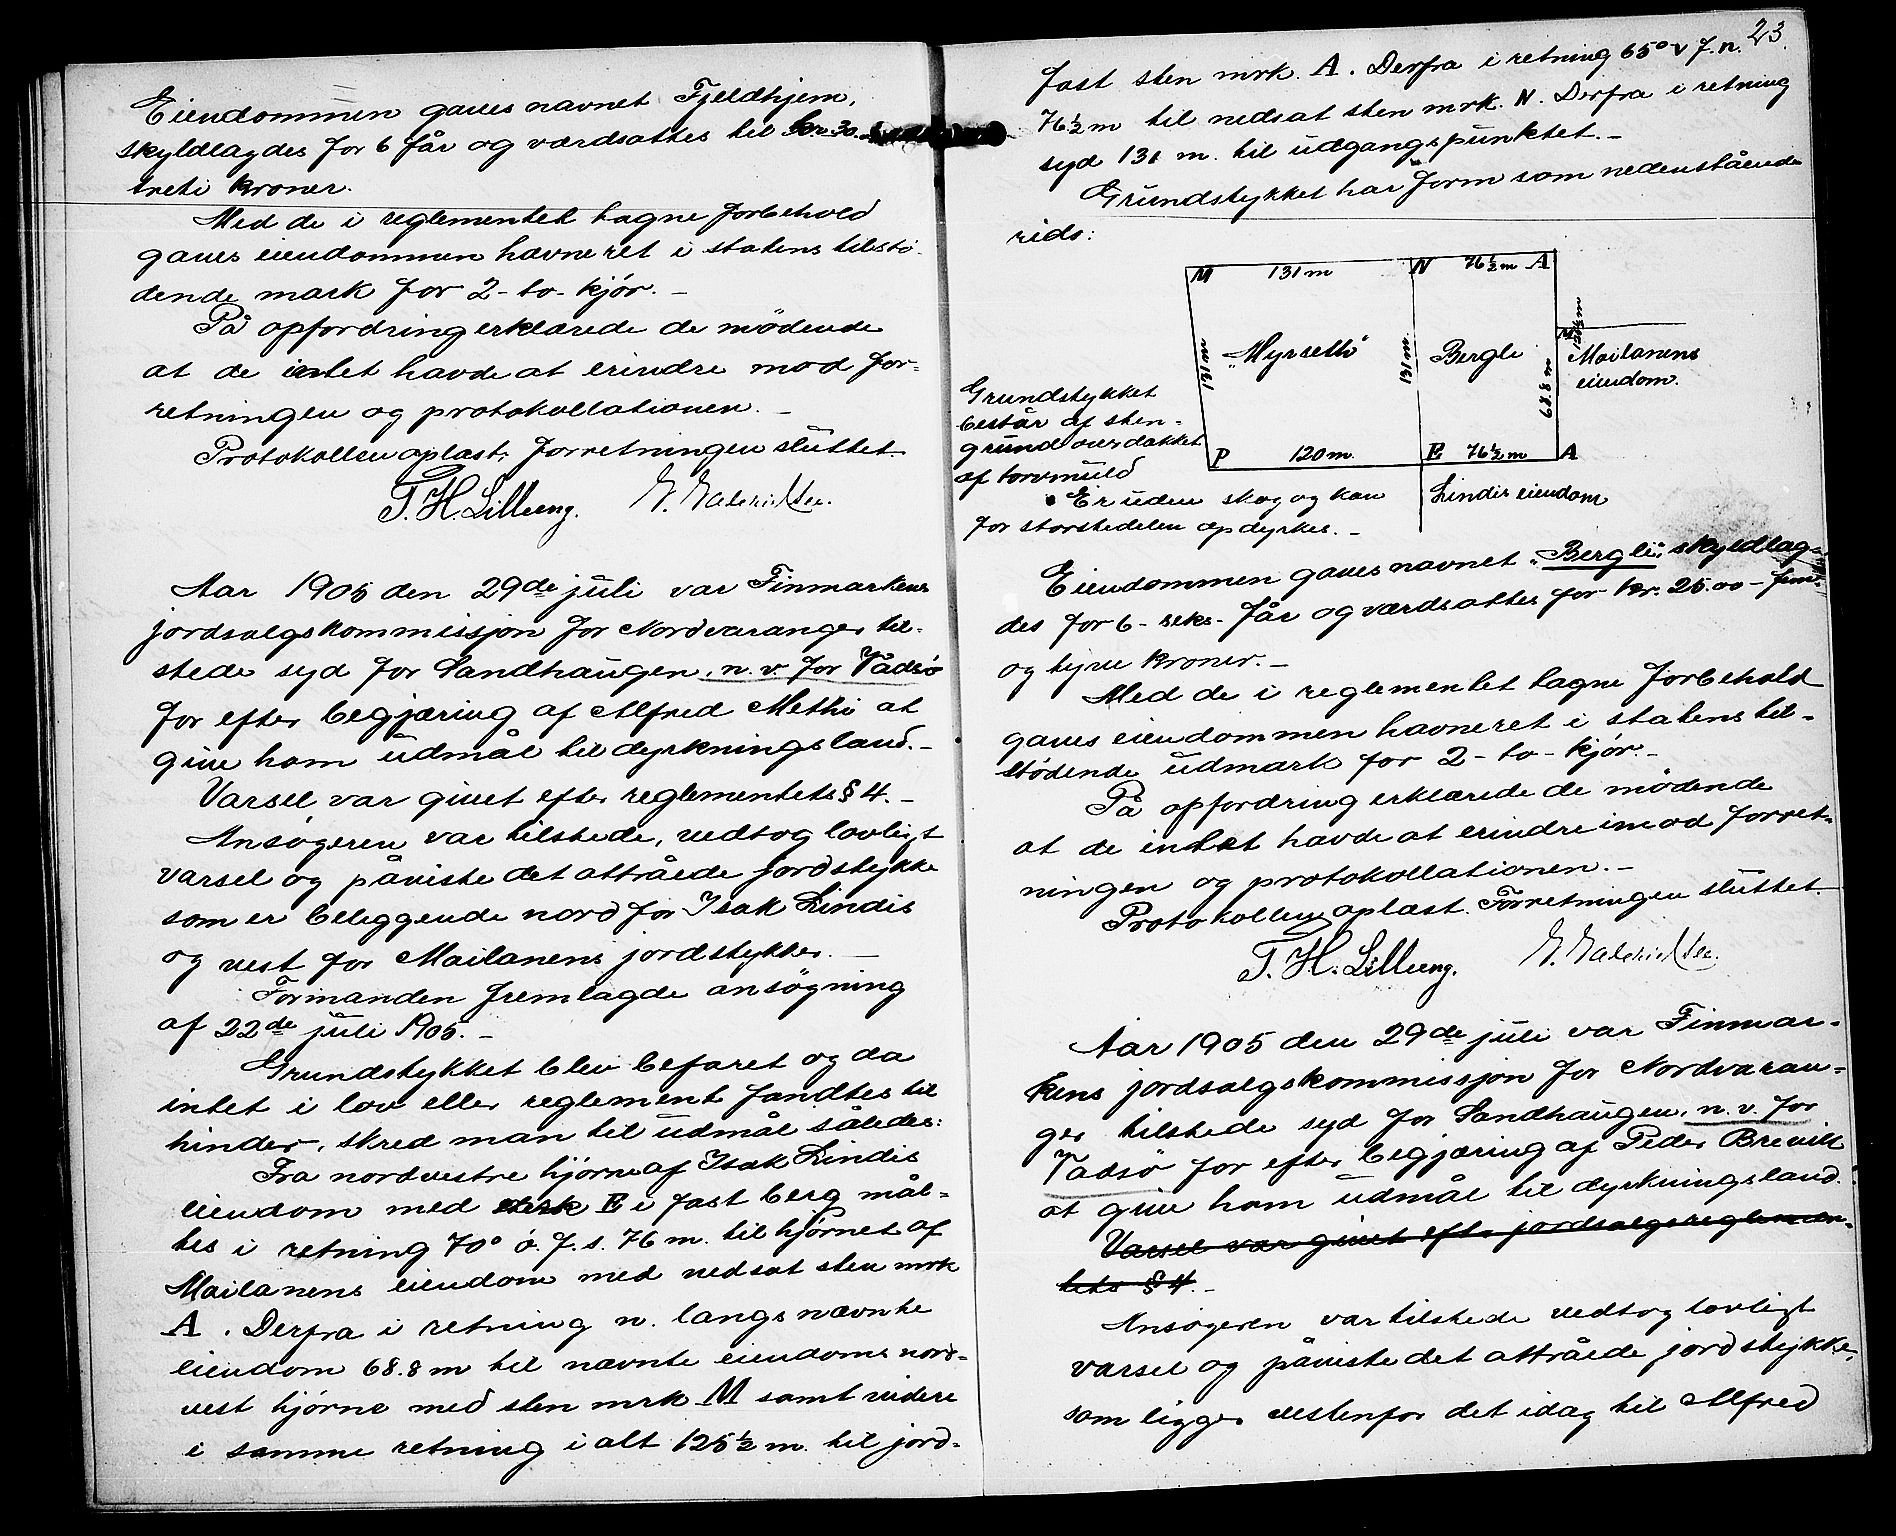 Eiendommen gaves navnet Fjeldhjem,
skyldlagdes for 6 får og værdsattes til kr. 30.
treti kroner.
Med de i reglementet tagne forbehold
gaves eiendommen havneret i statens tilstö-
dende mark for 2-to-kjör.-
På opfordring erklærede de mödende
at de intet havde at erindre mod for-
retningen og protokollationen.-
Protokollen oplæst, forretningen sluttet.
T. H. Lilleeng.
Aar 1905 den 29de juli var Finmarkens
jordsalgskommissjon for Nordvaranger til-
stede syd for Sandhaugen, n. v. for Vadsö
for efter begjæring af Alfred Methi at
give ham udmål til dyrkningsland.-
Varsel var givet efter reglementets § 4.-
Ansögeren var tilstede, vedtog lovligt
varsel og påviste det attråede jordstykke
som er beliggende nord for Isak Lindis
og vest for Mailanens jordstykker.-
Formanden fremlagde ansögning
af 22de juli 1905.-
Grundstykket blev befaret og da
intet i lov eller reglement fandtes til
hinder, skred man til udmål således:
Fra nordvestre hjörne af Isak Lindis
eiendom med mrk E i fast berg mål-
tes i retning 70° ö. f. s. 76 m. til hjörnet af
Mailanens eiendom med nedsat sten mrk
A. Derfra i retning n. langs nævnte
eiendom 68.8 m til nævnte eiendoms nord-
vest hjörne med sten mrk M samt videre
i samme retning i alt 125½ m. til jord-
23.
fast sten mrk. A. Derfra i retning 65° v f. n.
76½ m til nedsat sten mrk. N. Derfra i retning
syd 131 m. til udgangspunktet.-
Grundstykket har form som nedenstående
rids:
M 131 m N 76½ m A
131 m „Myrsethi" 131 m Bergli 68.8 m M Mailanens
eiendom.
P 120 m. E 76½ m A
Lindis eiendom
Grundstykket
består af sten-
grund overdækket
af torvmuld
Er uden skog og kan
for störstedelen opdyrkes.-
Eiendommen gaves navnet „Bergli", skyldlag-
des for 6-seks-får og værdsattes for kr. 25.00 - fem
og tyve kroner.-
Med de i reglementet tagne forbehold
gaves eiendommen havneret i statens til-
stödende udmark for 2-to-kjör.-
På opfordring erklærede de mödende
at de intet havde at erindre imod forret-
ningen og protokollationen.-
Protokollen oplæst. Forretningen sluttet.
T. H. Lilleeng.
Aar 1905 den 29de juli var Finmar-
kens jordsalgskommissjon for Nordvaran-
ger tilstede syd for Sandhaugen, n. v. for
Vadsö for efter begjæring af Peder Brevik
at give ham udmål til dyrkningsland.
Varsel var givet eft. jordsalgsreglemen-
tets § 4.-
Ansögeren var tilstede vedtog lovligt
varsel og påviste det attråede jordstykke,
som ligger vestenfor det idag til Alfred